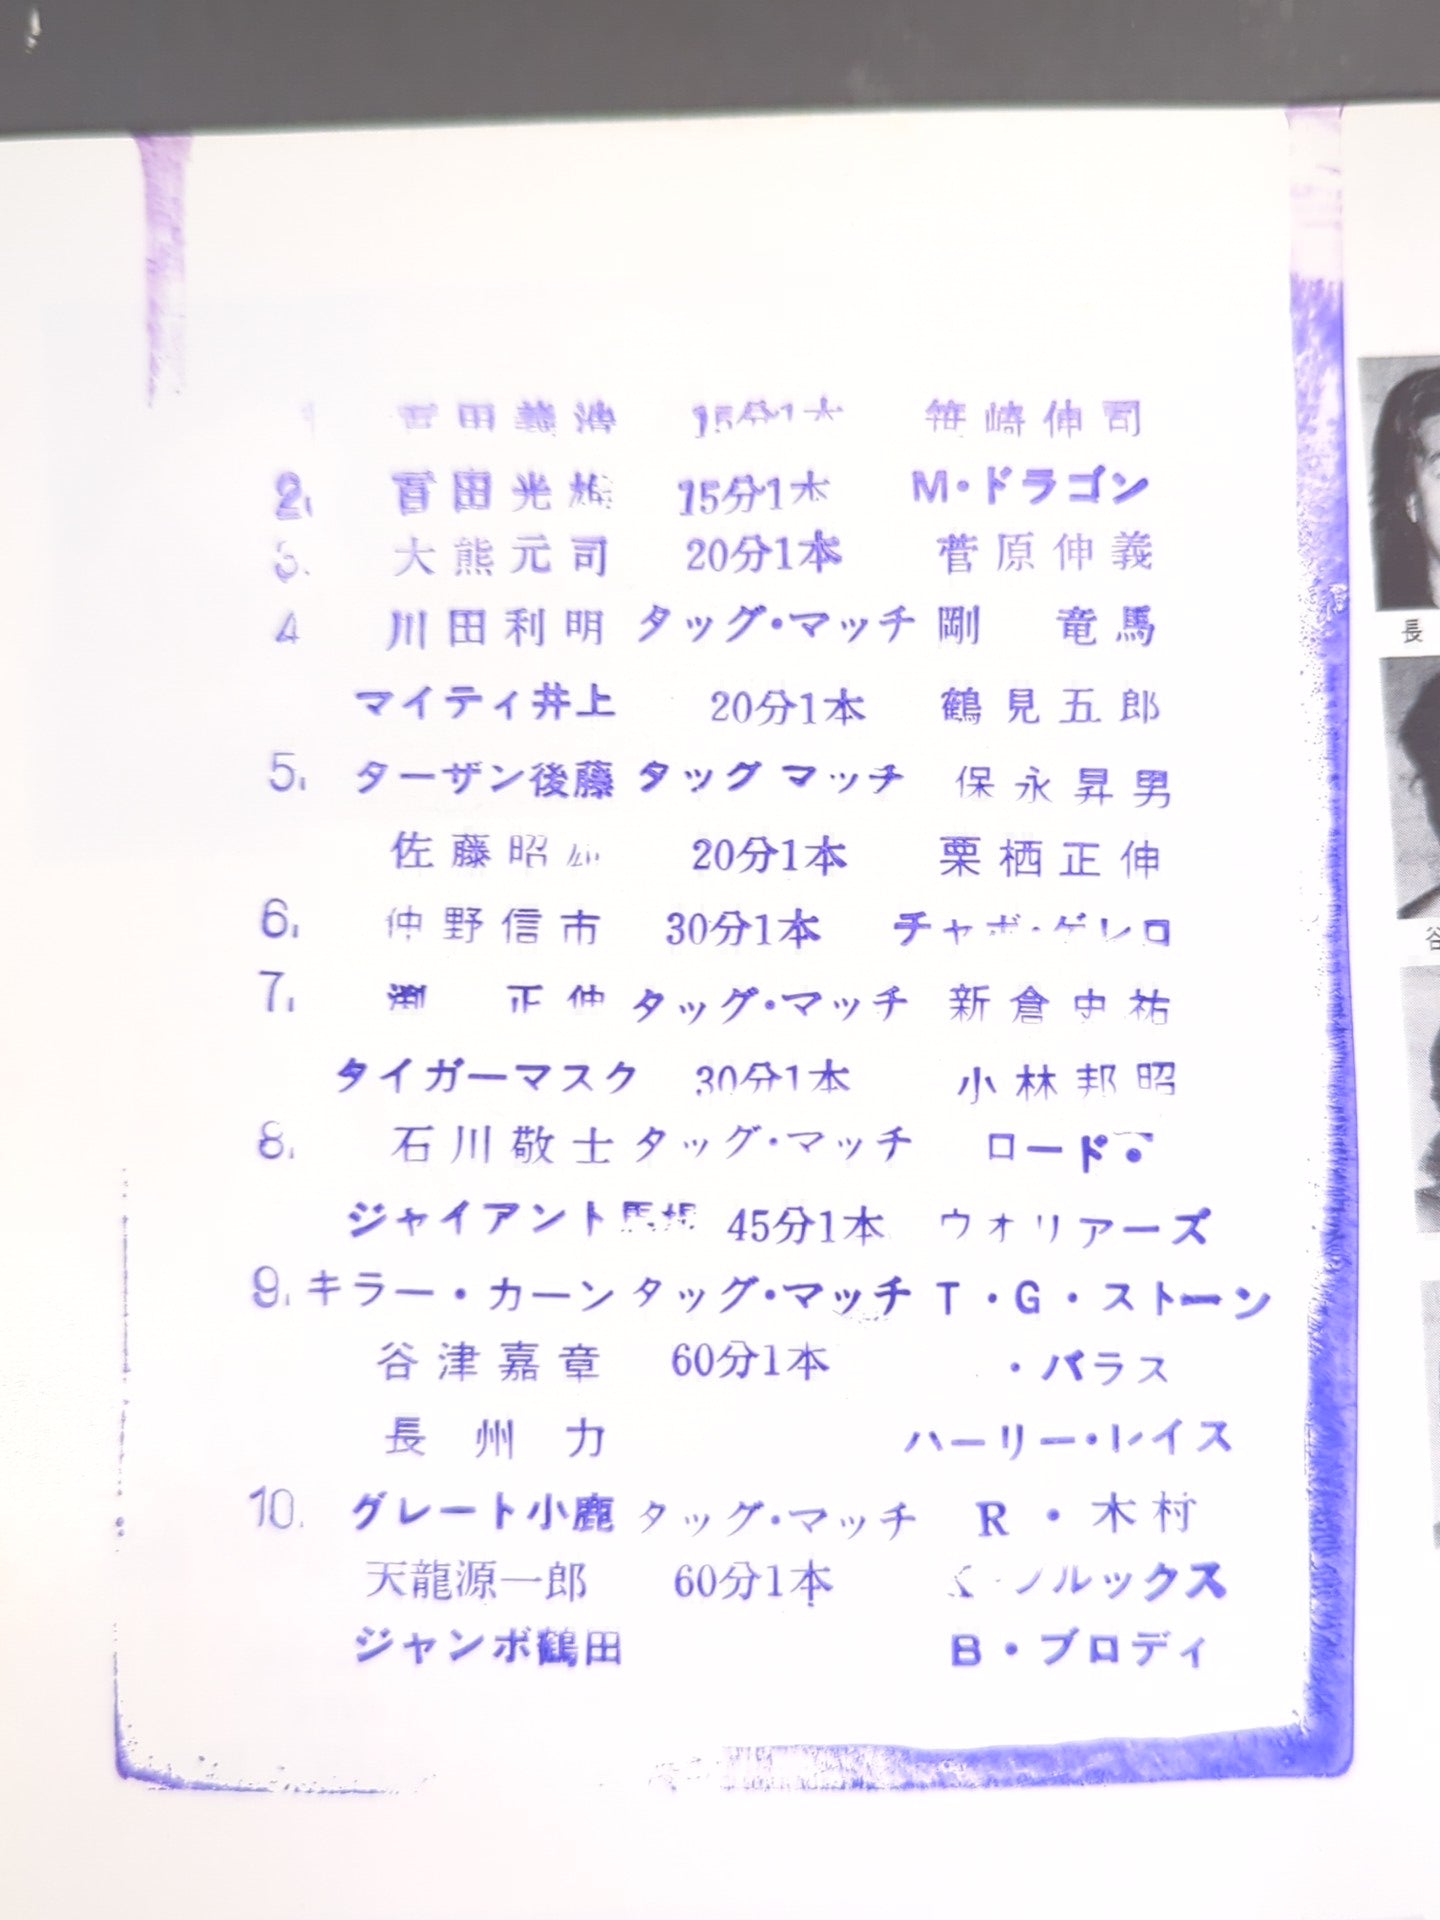 1 百田義浩 15分1本 笹崎伸司
2. 百田光雄 15分1本 M・ドラゴン
3. 大熊元司 20分1本 菅原伸義
4 川田利明 タッグ・マッチ 剛 竜馬
マイティ井上 20分1本 鶴見五郎
5. ターザン後藤 タッグ マッチ 保永昇男
佐藤昭 20分1本 栗栖正伸
6. 仲野信市 30分1本 チャボ・ゲレロ
7. 渕 正伸 タッグ・マッチ 新倉史祐
タイガーマスク 30分1本 小林邦昭
8. 石川敬士 タッグ・マッチ ロード・
ジャイアント馬場 45分1本 ウォリアーズ
9. キラー・カーン タッグ・マッチ T・G・ストーン
谷津嘉章 60分1本 ・バラス
長州力 ハーリー・レイス
10. グレート小鹿 タッグ・マッチ R・木村
天龍源一郎 60分1本 ルックス
ジャンボ鶴田 B・ブロディ
長
谷